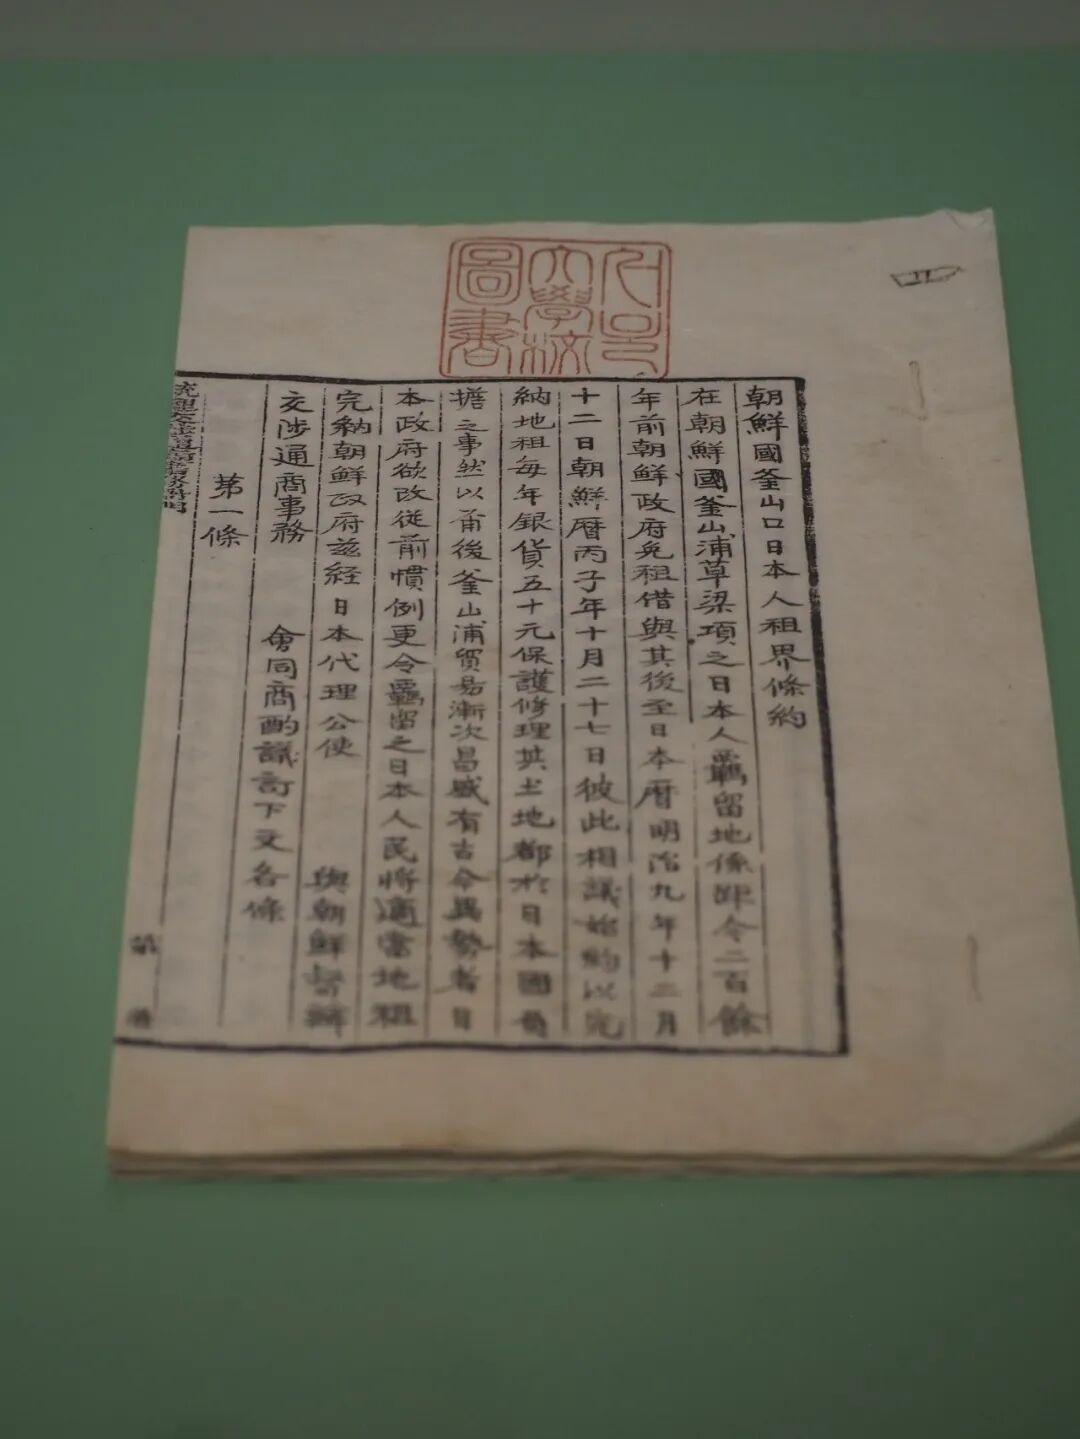 朝鮮國釜山口日本人租界條約
在朝鮮國釜山浦草梁項之日本人羈留地係距今二百餘
年前朝鮮政府免租借與其後至日本曆明治九年十二月
十二日朝鮮曆丙子年十月二十七日彼此相議始約以完
納地租每年銀貨五十元保護修理其土地都於日本國負
擔之事然以前後釜山浦貿易漸次昌盛有古今異勢者日
本政府欲改從前慣例更令羈留之日本人民將適當地租
完納朝鮮政府茲経日本代理公使 與朝鮮督辦
交涉通商事務 會同商酌議訂下文各條
第一條
圖書
大學校